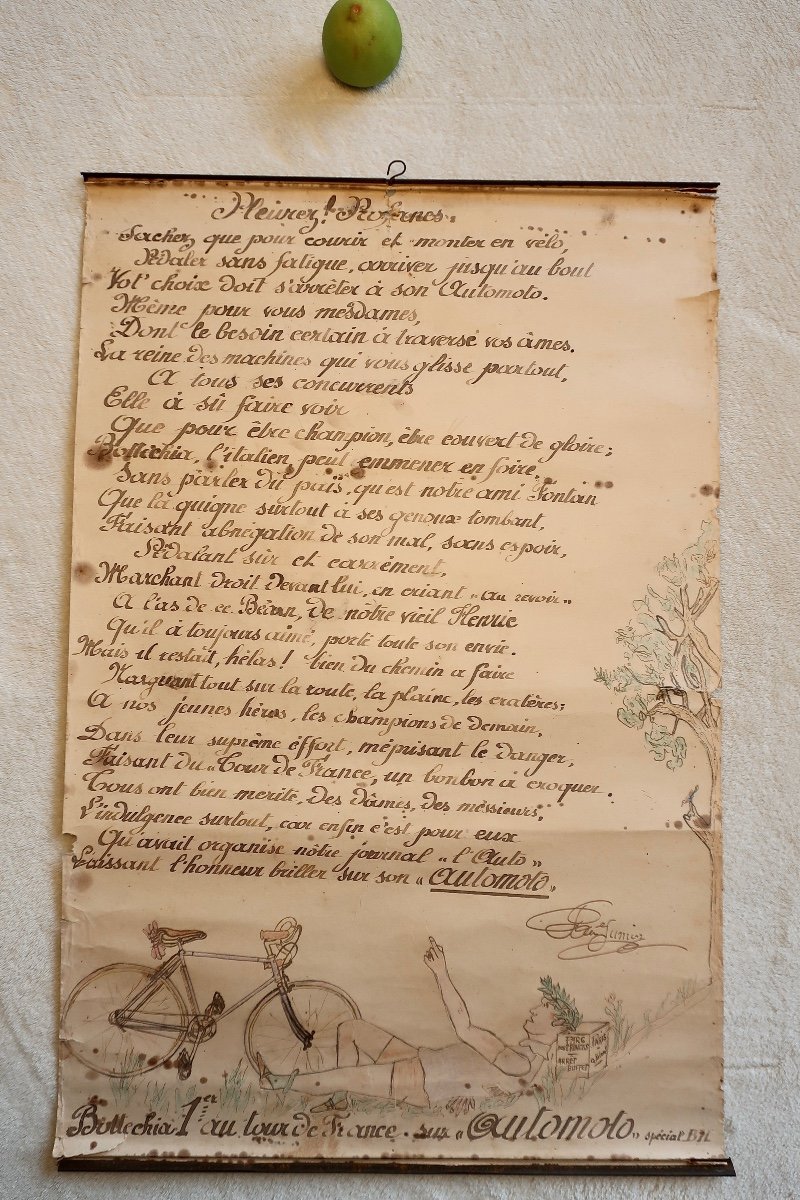 Pleurez! Profanes.
Sachez que pour courir et monter en vélo,
Pédaler sans fatigue, arriver jusqu'au bout
Vot' choix doit s'arrêter à son Automoto.
Même pour vous mesdames,
Dont le besoin certain à traversé vos âmes.
La reine des machines qui vous glisse partout,
A tous ses concurrents
Elle à sû faire voir
Que pour être champion, être couvert de gloire;
Bottéchia, l'italien, peut emmener en foire,
Sans parler du païs, qu'est notre ami Fontain
Que la guigne surtout à ses genoux tombant,
Faisant abnégation de son mal, sans espoir,
Pédalant sûr et carrément,
Marchant droit devant lui, en criant "au revoir"
A l'as de ce Béarn, de nôtre vieil Henrie
Qu'il à toujours aimé, porté toute son envie.
Mais il restait, hélas! bien du chemin a faire
Narguant tout sur la route, la plaine, les cratères;
A nos jeunes héros, les champions de demain,
Dans leur suprême effort, méprisant le danger,
Faisant du "Tour de France, un bonbon à croquer.
Tous ont bien merité, des dâmes, des messieurs,
L'indulgence surtout, car enfin c'est pour eux
Qu'avait organisé nôtre journal "l'Auto"
Laissant l'honneur briller sur son "Automoto"
Junior
PARC
DES PRINCES
ARRET
BUFFET
Bottechia 1er au tour de France. sur "Automoto" spécial.